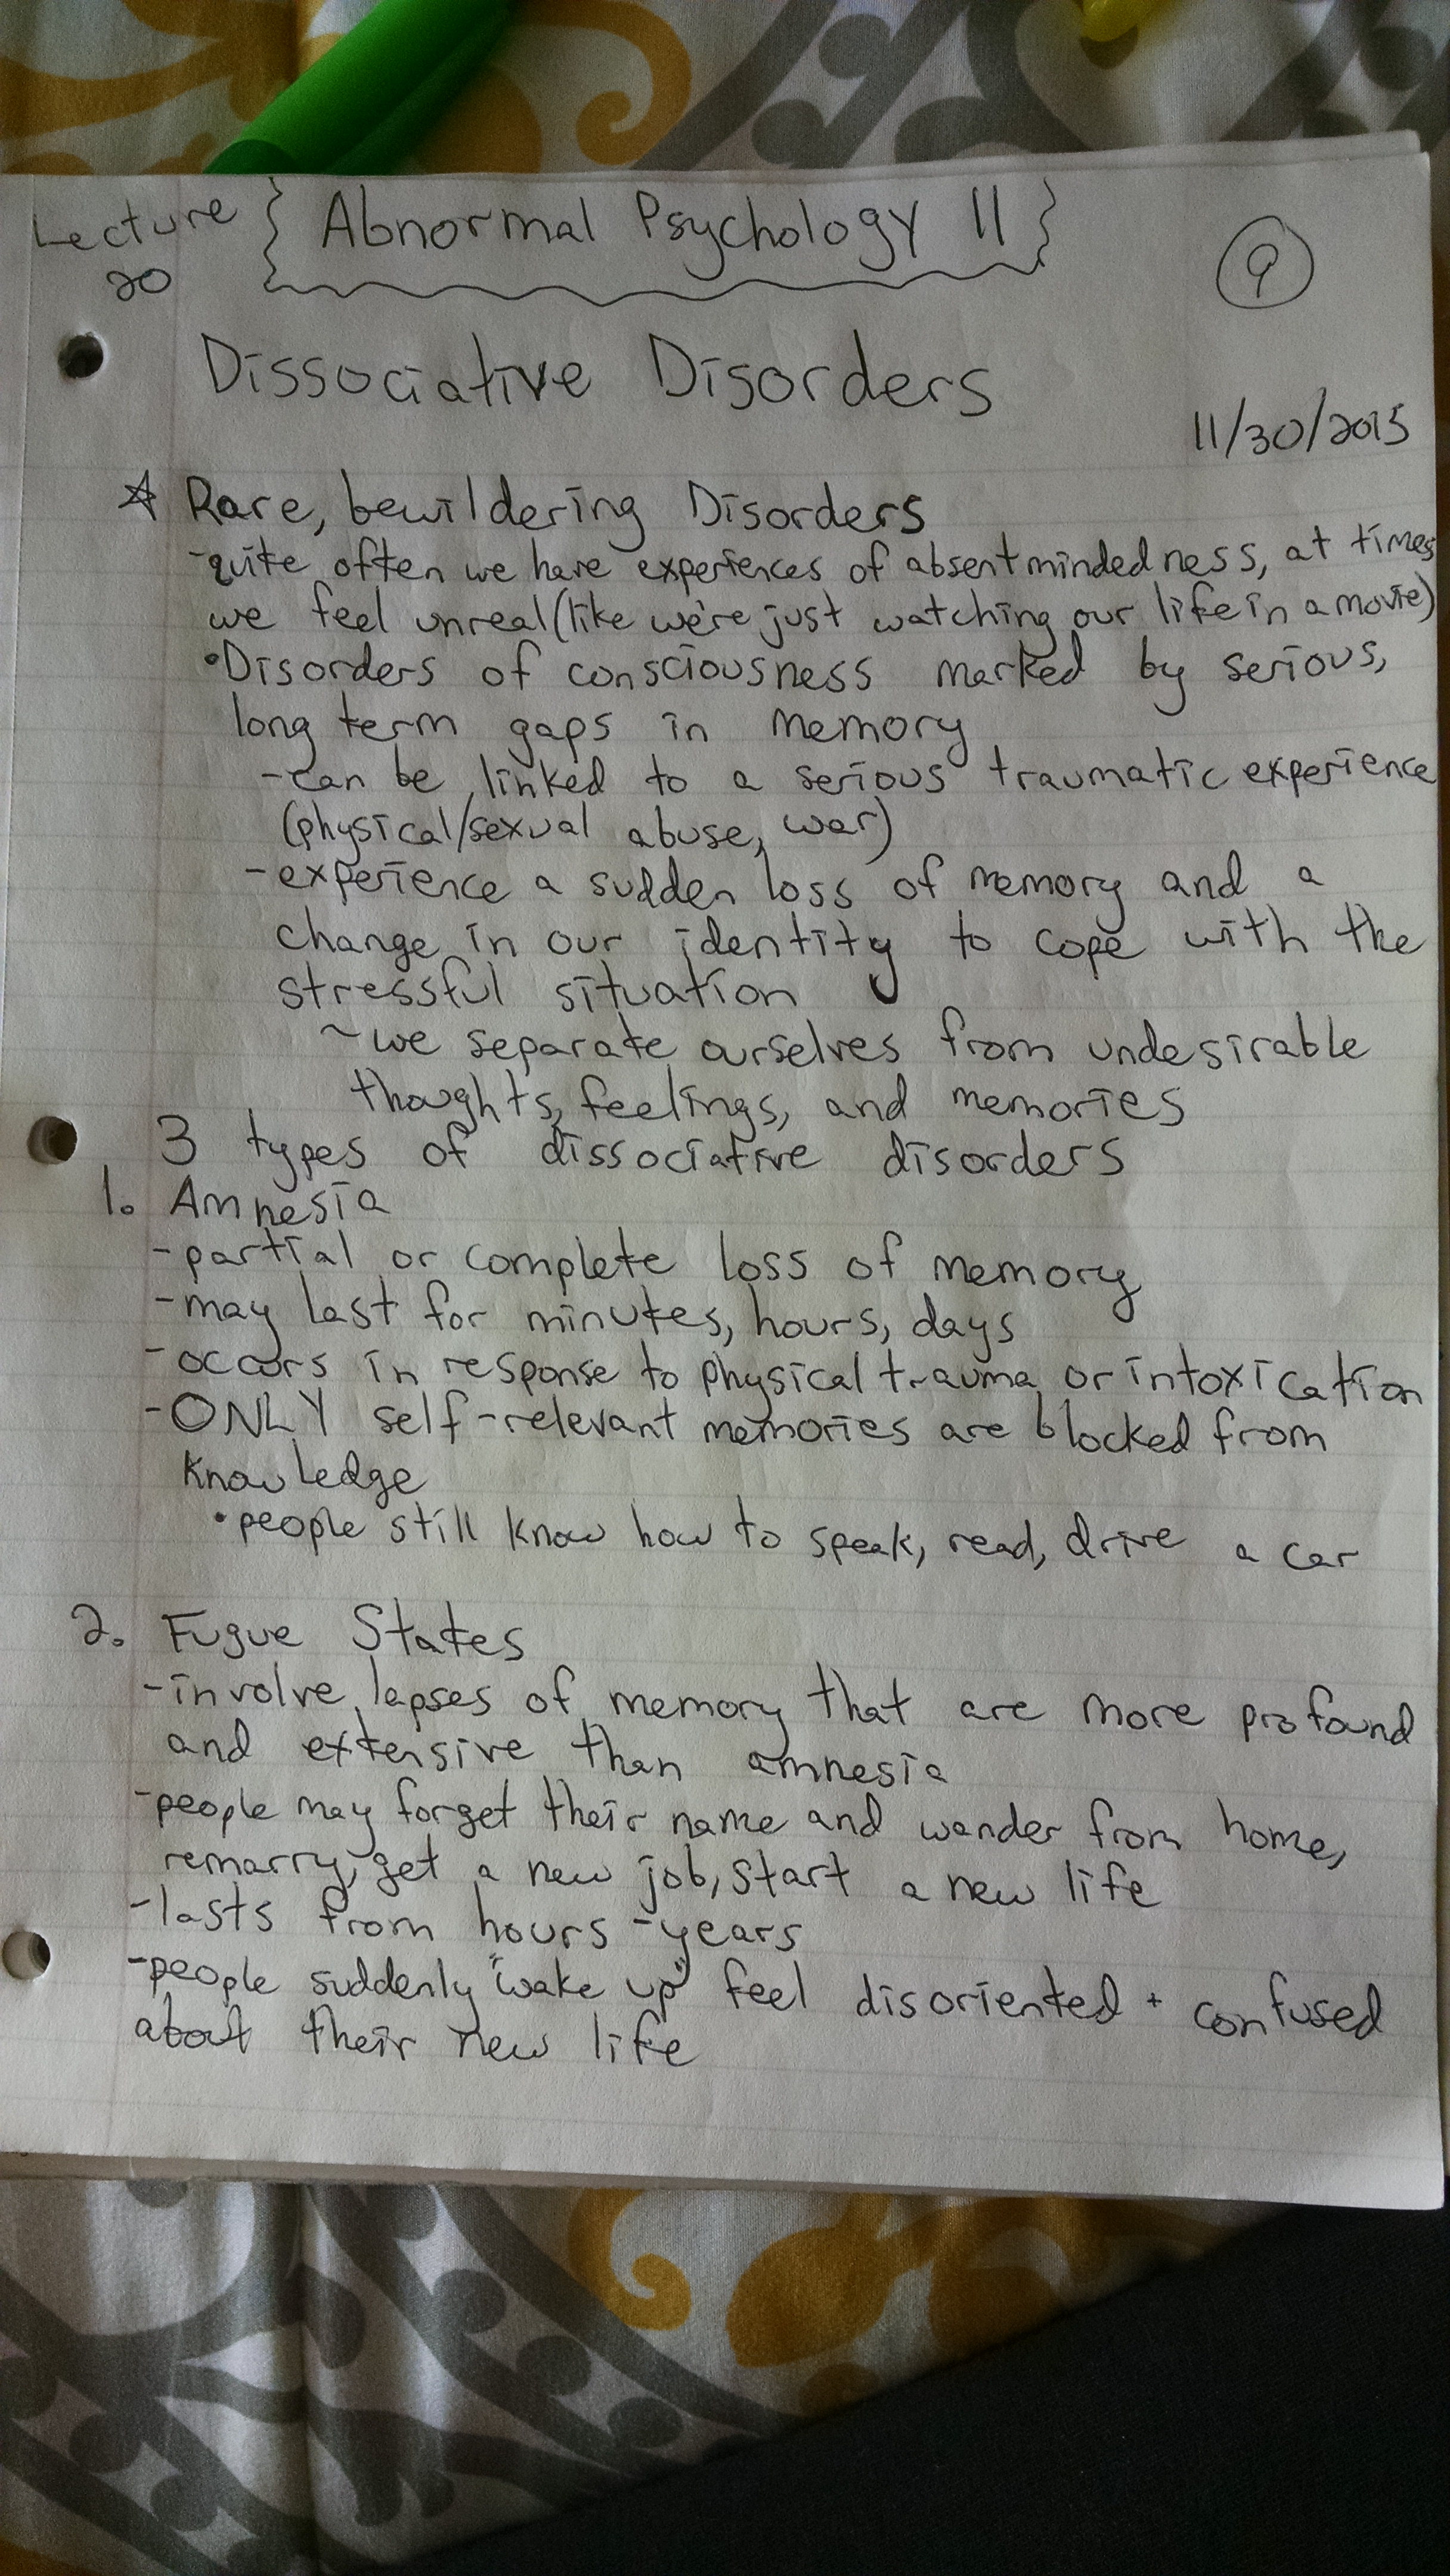 Lecture { Abnormal Psychology II }
20
9
Dissociative Disorders
11/30/2015
☆ Rare, bewildering Disorders
-quite often we have experiences of absentmindedness, at times
we feel unreal (like we're just watching our life in a movie)
•Disorders of consciousness marked by serious,
long term gaps in memory
-can be linked to a serious traumatic experience
(physical/sexual abuse, war)
-experience a sudden loss of memory and a
change in our identity to cope with the
stressful situation
~we separate ourselves from undesirable
thoughts, feelings, and memories
3 types of dissociative disorders
1. Amnesia
-partial or complete loss of memory
-may last for minutes, hours, days
-occurs in response to physical trauma or intoxication
-ONLY self-relevant memories are blocked from
knowledge
•people still know how to speak, read, drive a car
2. Fugue States
-involve lapses of memory that are more profound
and extensive than amnesia
-people may forget their name and wander from home,
remarry, get a new job, start a new life
-lasts from hours-years
-people suddenly "wake up" feel disoriented + confused
about their new life